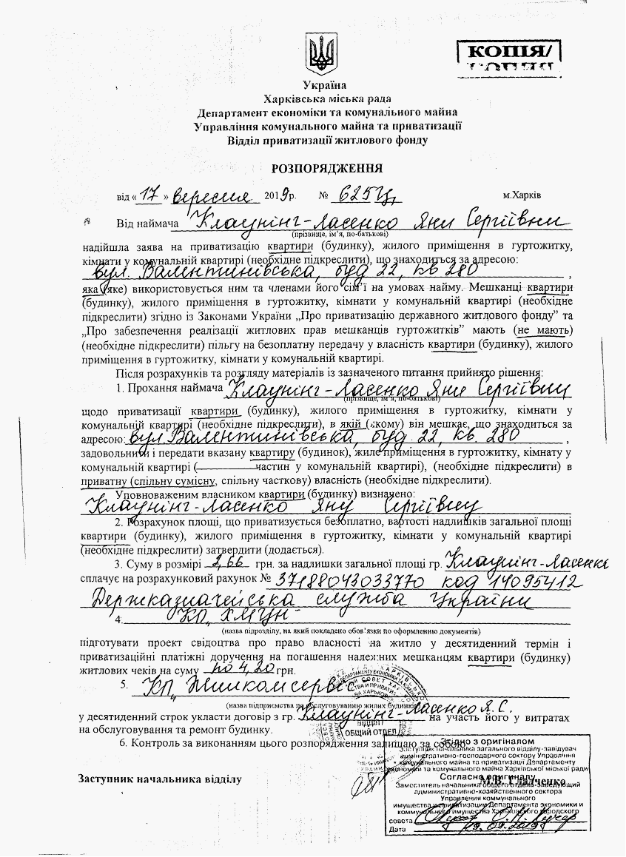 КОПІЯ/
КОПІЯ
Україна
Харківська міська рада
Департамент економіки та комунального майна
Управління комунального майна та приватизації
Відділ приватизації житлового фонду
РОЗПОРЯДЖЕННЯ
від « 17 » вересня 2019р. № 6257ц м.Харків
Від наймача Клаунінг-Ласенко Яни Сергіївни
(прізвище, ім'я, по-батькові)
надійшла заява на приватизацію квартири (будинку), жилого приміщення в гуртожитку,
кімнати у комунальній квартирі (необхідне підкреслити), що знаходиться за адресою:
вул. Валентинівська, буд 22, кв 280 ,
яка (яке) використовується ним та членами його сім'ї на умовах найму. Мешканці квартири
(будинку), жилого приміщення в гуртожитку, кімнати у комунальній квартирі (необхідне
підкреслити) згідно із Законами України „Про приватизацію державного житлового фонду" та
„Про забезпечення реалізації житлових прав мешканців гуртожитків" мають (не мають)
(необхідне підкреслити) пільгу на безоплатну передачу у власність квартири (будинку), жилого
приміщення в гуртожитку, кімнати у комунальній квартирі.
Після розрахунків та розгляду матеріалів із зазначеного питання прийнято рішення:
1. Прохання наймача Клаунінг-Ласенко Яни Сергіївни
(прізвище, ім'я, по-батькові)
щодо приватизації квартири (будинку), жилого приміщення в гуртожитку, кімнати у
комунальній квартирі (необхідне підкреслити), в якій (якому) він мешкає, що знаходиться за
адресою: вул Валентинівська, буд 22, кв. 280 ,
задовольнити і передати вказану квартиру (будинок), жиле приміщення в гуртожитку, кімнату у
комунальній квартирі ( частин у комунальній квартирі), (необхідне підкреслити) в
приватну (спільну сумісну, спільну часткову) власність (необхідне підкреслити).
Уповноваженим власником квартири (будинку) визначено:
Клаунінг-Ласенко Яну Сергіївну
2. Розрахунок площі, що приватизується безоплатно, вартості надлишків загальної площі
квартири (будинку), жилого приміщення в гуртожитку, кімнати у комунальній квартирі
(необхідне підкреслити) затвердити (додається).
3. Суму в розмірі 2,66 грн. за надлишки загальної площі гр. Клаунінг-Ласенко
сплачує на розрахунковий рахунок № 37188043033770 код 14095412
Держказначейська служба України
4. КП „ХМЦН"
(назва підрозділу, на який покладено обов'язки по оформленню документів)
підготувати проект свідоцтва про право власності на житло у десятиденний термін і
приватизаційні платіжні доручення на погашення належних мешканцям квартири (будинку)
житлових чеків на суму по 4,20 грн.
5. КП „Жилкомсервіс"
(назва підприємства по обслуговуванню жилих будинків)
у десятиденний строк укласти договір з гр. Клаунінг-Ласенко Я.С. на участь його у витратах
на обслуговування та ремонт будинку.
ОБЩИЙ ОТДЕЛ
6. Контроль за виконанням цього розпорядження залишаю за собою.
Заступник начальника відділу М.В. Гладченко
Згідно з оригіналом
Заступник начальника загального відділу-завідувач
адміністративно-господарчого сектора Управління
комунального майна та приватизації Департаменту
економіки та комунального майна Харківської міської ради
Согласно оригиналу
Заместитель начальника общего отдела-заведующий
административно-хозяйственного сектора
Управления коммунального
имущества и приватизации Департамента экономики и
коммунального имущества Харьковского городского
совета
Дата